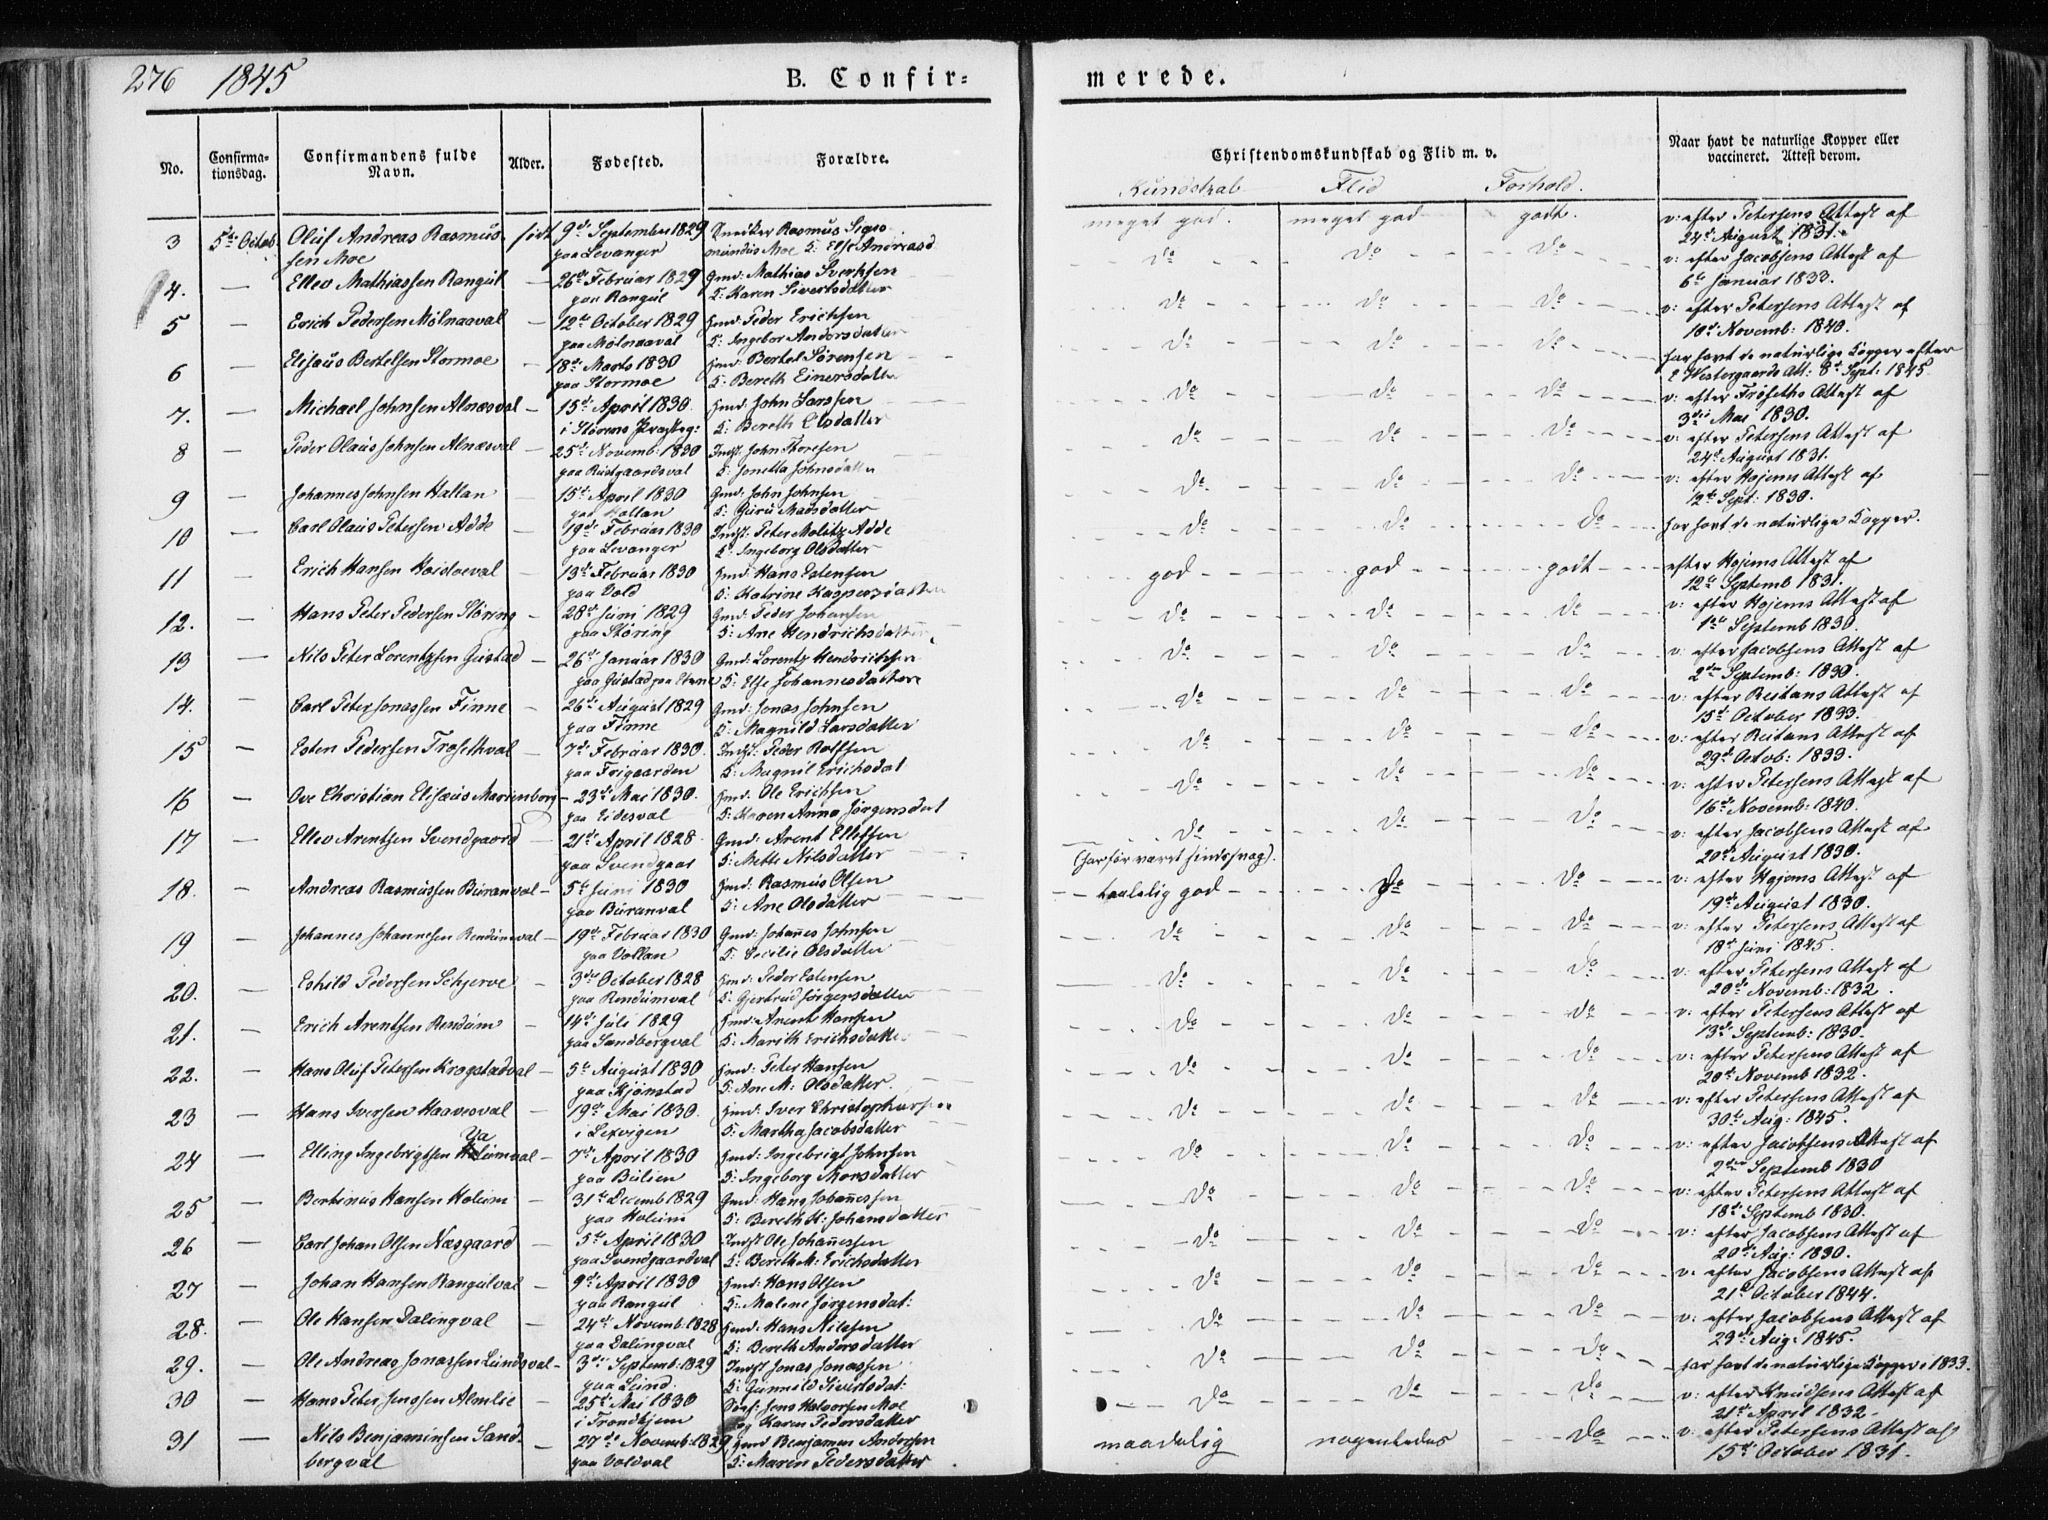 276 1845 B. Confir= merede.
No. Confirma-tionsdag. Confirmandens fulde Navn. Alder. Fødested. Forældre. Christendomskundskab og Flid m. v. Naar havt de naturlige Kopper eller vaccineret. Attest derom.
Kundskab Flid Forhold.
3 5te Octob. Oluf Andreas Rasmus- født 9de September 1829 Snedker Rasmus Sigis- meget god. meget god godt. v: efter Petersens Attest af
sen Moe paa Levanger mundus Moe & Else Andreasd 24de August 1831.
4. — Ellev Mathiassen Rangul — 26de Februar 1829 Gmd: Mathias Sverksen do do do v: efter Jacobsens Attest af
paa Rangul & Karen Sivertsdatter 6te Januar 1833.
5 — Erich Pedersen Mølnaaval — 12te October 1829 Hmd: Peder Erichsen do do do v: efter Petersens Attest af
paa Mølnaaval & Ingebor Andersdatter 10de Novemb: 1840.
6 — Elisæus Bertelsen Stormoe — 18de Marts 1830 Hmd: Bertel Sørensen do do do har havt de naturlige Kopper efter
paa Stormoe & Bereth Einersdatter Westergaards Att: 8de Sept: 1845
7. — Michael Johnsen Alnæsval — 15de April 1830. Hmd: John Larssen do do do v: efter Frøseths Attest af
i Størens Præsteg: & Bereth Elsdatter 3die Mai 1830.
8 — Peder Olaus Johnsen Alnæsval — 25de Novemb: 1830 Indst. John Thoresen do do do v: efter Petersens Attest af
paa Rustgaardsval & Jonetta Johnsdatter 24de August 1831.
9 — Johannes Johnsen Hallan — 15de April 1830 Gmd: John Johnsen do do do v: efter Hojems Attest af
paa Hallan & Guru Madsdatter 12te Sept: 1830.
10 — Carl Olaus Petersen Adde — 19de Februar 1830 Indst: Peter Moltz Adde do do do har havt de naturlige Kopper.
paa Levanger & Ingeborg Olsdatter
11 — Erich Hansen Heidoeval — 13de Februar 1830 Hmd: Hans Estensen god god godt efter Hojems Attest af
paa Vold & Katrine Kaspersdatter 12te Septemb 1831.
12. — Hans Peter Pedersen Støring — 28de Juni 1829 Gmd: Peder Johansen do do do v: efter Hojems Attest af
paa Støring & Ane Hendrichsdatter 1ste Septemb 1830.
13 — Nils Peter Lorentzsen Gustad — 26de Januar 1830 Gmd: Lorentz Hendrichsen do do do v: efter Jacobsens Attest af
paa Gustad paa & Else Johannesdatter 2den Septemb: 1830.
14. — Carl Peter Jonassen Finne — 26de August 1829 Gmd: Jonas Johnsen do do do v: efter Reitans Attest af
paa Finne & Magnild Larsdatter 15de October 1833.
15 — Esten Pedersen Frosethval — 7de Februar 1830. Indst: Peder Rolfsen do do do v: efter Reitans Attest af
paa Frigaarden & Magnil Erichsdat 29de Octob: 1833.
16 — Ove Christian Elisæus Marienborg — 23de Mai 1830. Hmd: Ole Erichsen do do do v: efter Petersens Attest af
paa Eidesval & Karen Anna Jørgensdat 16de Novemb: 1840.
17 — Ellev Arentsen Svendgaard — 21de April 1828. Gmd: Arent Ellefsen do do do v: efter Jacobsens Attest af
paa Svendgaar & Mette Nilsdatter (har før været sindssvag). 20de August 1830.
18. — Andreas Rasmussen Buranval — 5te Juni 1830 Hmd: Rasmus Olsen taalelig god do do v: efter Hojems Attest af
paa Buranval & Ane Olsdatter 19de August 1830.
19 — Johannes Johannesen Rendumval — 19de Februar 1830 Gmd: Johannes Johnsen do do do v: efter Petersens Attest af
paa Vollan & Cecilie Olsdatter 18de Juni 1845.
20. — Eskild Pedersen Schjerve — 3die October 1828 Hmd: Peder Estensen do do do v: efter Petersens Attest af
paa Rendumval & Gjertrud Jørgensdatter 20de Novemb: 1832.
21. — Erich Arentsen Rendum — 14de Juli 1829 Hmd: Arent Hansen do do do v: efter Petersens Attest af
paa Sandbergval & Marith Erichsdatter 13de Septemb: 1830
22. — Hans Oluf Petersen Krogstadval — 5te August 1830 Hmd: Peter Hansen do do do v: efter Petersens Attest af
paa Kjønstad & Ane M: Olsdatter. 20de Novemb 1832.
23 — Hans Iversen Haavesval — 19de Mai 1830. Hmd: Iver Christophersen do do do v: efter Petersens Attest af
i Lexvigen & Martha Jacobsdatter 30te Aug: 1845.
24 — Elling Ingebrigtsen — 7de April 1830 Hmd: Ingebrigt Johnsen do do do v: efter Jacobsens Attest af
paa Bulien & Ingeborg Morsdatter 2den Septemb 1830
25 — Bertinus Hansen Holum — 31te Decemb 1829 Gmd: Hans Johannessen do do do v: efter Petersens Attest af
paa Holum & Bereth H: Johansdatter 18de Septemb 1830.
26 — Carl Johan Olsen Næsgaard — 5te April 1830 Indst Ole Johannessen do do do v: efter Jacobsens Attest af
paa Svendgaardval & Bereth M: Erichsdatter 20de Aug: 1830.
27 — Johan Hansen Rangulval — 9de April 1830 Hmd: Hans Olsen do do do v: efter Jacobsens Attest af
paa Rangul & Malene Jørgensdat: 21de October 1844.
28. — Ole Hansen Dalingval — 24de Novemb: 1828 Hmd: Hans Nilssen do do do v: efter Jacobsens Attest af
paa Dalingval & Bereth Andersdatter 29de Aug: 1845.
29. — Ole Andreas Jonassen Lundsval — 3die Septemb: 1829 Indst Jonas Jonassen do do do har havt de naturlige Kopper i 1833.
paa Lund. & Gunnild Sivertsdat:
30 — Hans Peter Jenssen Almlie — 25de Mai 1830 Jens Halvorsen Moe do do do v: efter Knudsens Attest af
i Trondhjem og Karen Pedersdatter 21de April 1832
31 — Nils Benjaminsen Sand- — 27de Novemb: 1829 Hmd Benjamin Andersen maadelig nogenledes do v: efter Petersens Attest af
bergval paa Voldval & Maren Pedersdatter 15de October 1831.